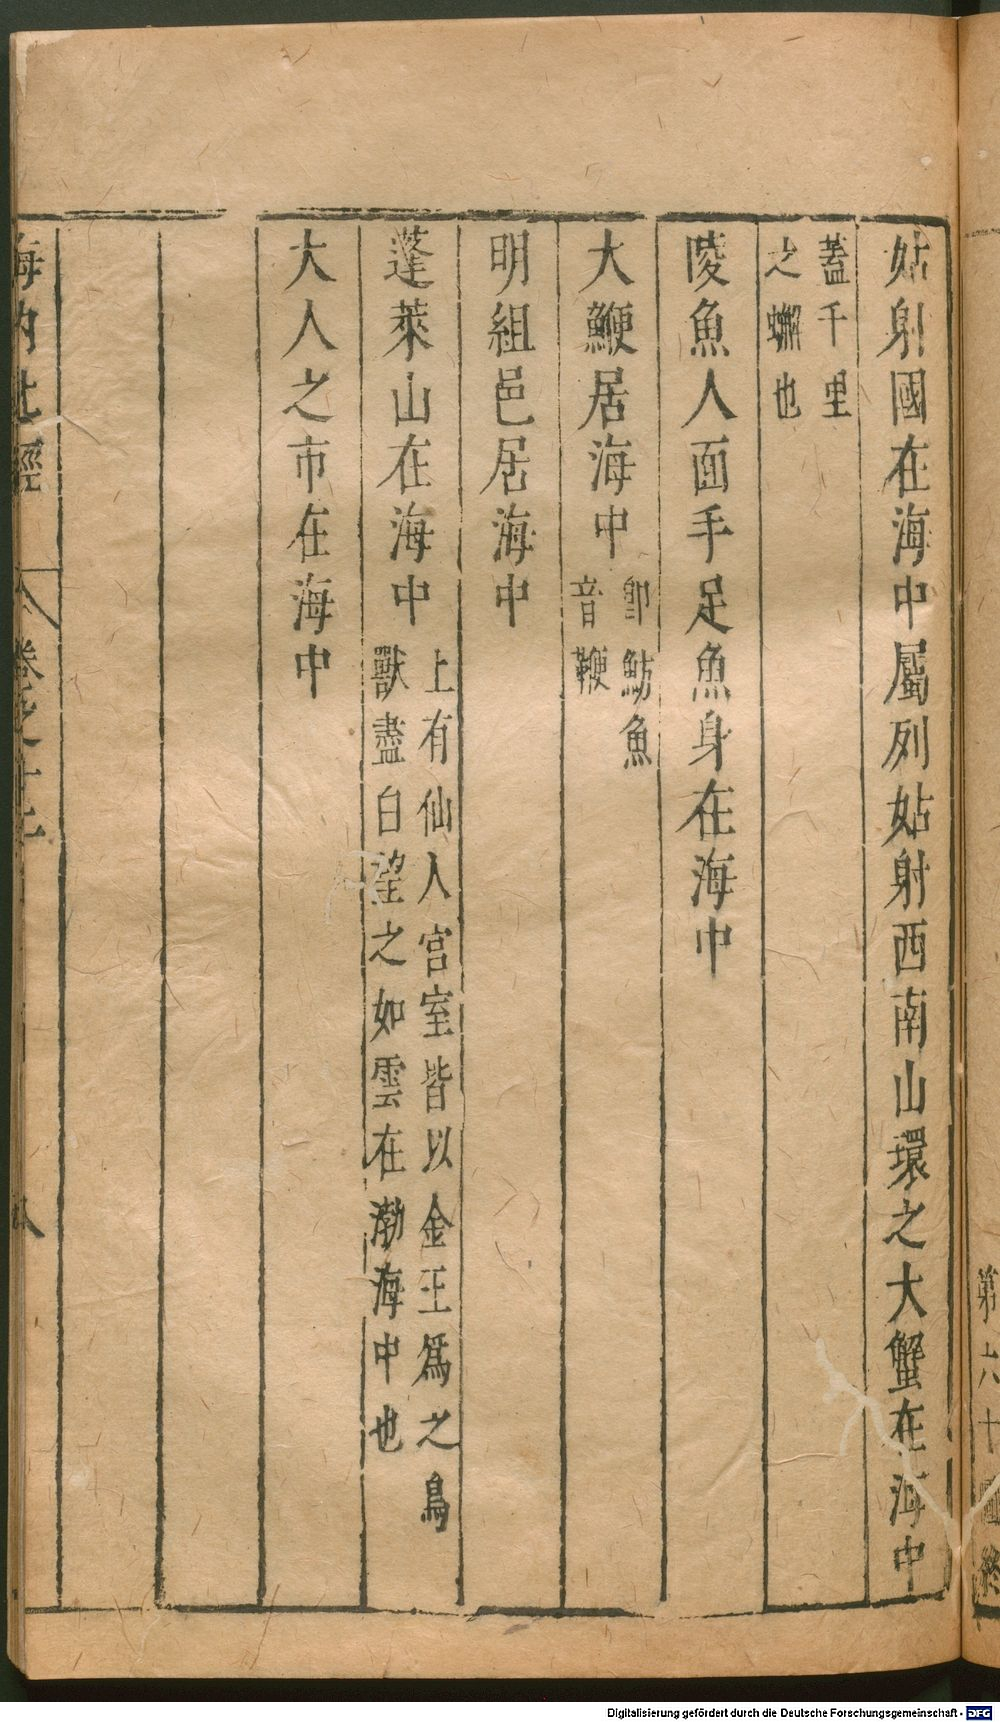 姑射國在海中屬列姑射西南山環之大蟹在海中
蓋千里
之蠏也
陵魚人面手足魚身在海中
大鯾居海中
卽魴魚
音鞭
明組邑居海中
蓬萊山在海中
上有仙人宫室皆以金玉爲之鳥
獸盡白望之如雲在渤海中也
大人之市在海中
海内北經 卷之十二 八
第六十
終
Digitalisierung gefördert durch die Deutsche Forschungsgemeinschaft - DFG